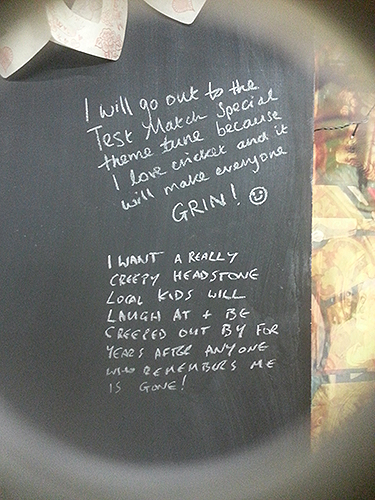 I will go out to the
Test Match Special
theme tune because
I love cricket and it
will make everyone
GRIN! ☺
I WANT A REALLY
CREEPY HEADSTONE
LOCAL KIDS WILL
LAUGH AT + BE
CREEPED OUT BY FOR
YEARS AFTER ANYONE
WHO REMEMBERS ME
IS GONE!